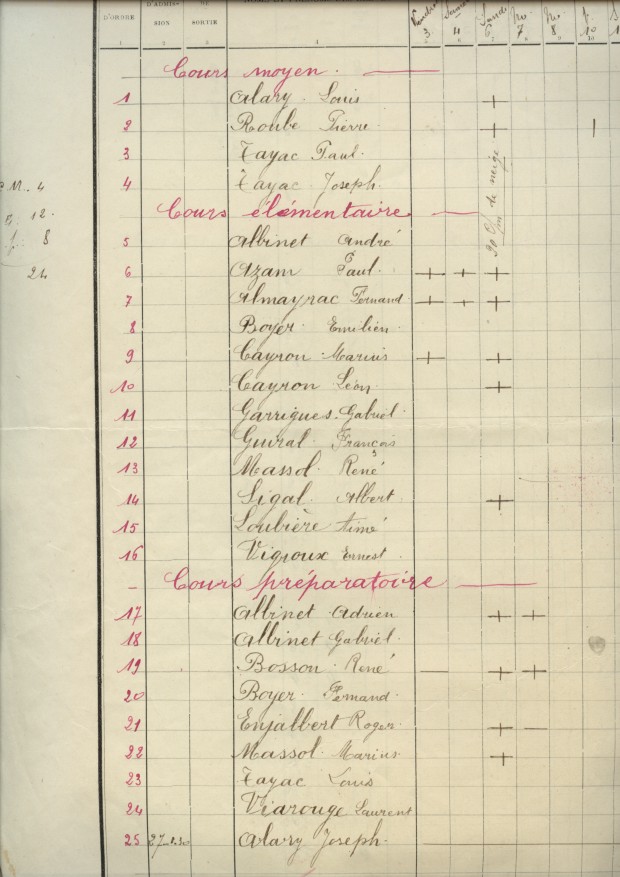 D'ORDRE D'ADMISSION DE SORTIE Vendredi 3 4 Lundi 6 7 8 10
1 2 3 4 5 6 7 8 9 10
Cours moyen.
1 Alary Louis +
2 Roube Pierre + 1
3 Tayac Paul.
4 Tayac Joseph.
C.M. 4
12.
8
24
20 c/m de neige
Cours élémentaire
5 Albinet André
6 Azam Paul. + + +
7 Almayrac Fernand + + +
8 Boyer Emilien.
9 Cayron Marius + +
10 Cayron Léon. +
11 Garrigues Gabriel.
12 Guiral François
13 Massol René
14 Sigal Albert +
15 Loubière Aimé
16 Vigroux Ernest.
Cours préparatoire
17 Albinet Adrien + +
18 Albinet Gabriel.
19 Bosson René + +
20 Boyer Fernand.
21 Enjalbert Roger. +
22 Massol Marius +
23 Tayac Louis
24 Viarouge Laurent
25 Alary Joseph.